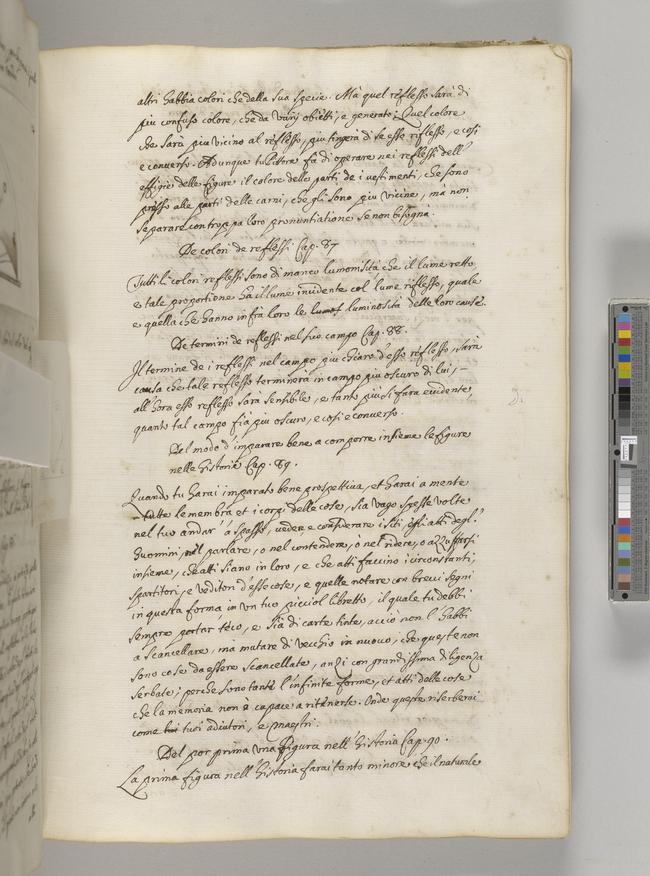 altri habbia colori che della sua specie. Mà quel reflesso sarà di
piu confuso colore, che da varij obietti, e generato; Quel colore
che sarà piu vicino al reflesso, piu tingerà di se esso riflesso, e così
e converso. Adunque tu Pittore fà di operare nei reflessi dell'
effigie delle figure il colore delle parti de i vestimenti, che sono
presso alle parti delle carni, che gli sono piu vicine, mà non
separare con troppa loro pronuntiatione se non bisogna.
De colori de reflessi Cap. 87
Tutti li colori reflessi sono di manco luminosità che il lume retto
e tale proportione hà il lume incidente col lume riflesso, quale
e quella che hanno infrà loro le luminosità delle loro cause.
De termini de reflessi nel suo campo Cap. 88.
Il termine de i reflessi nel campo piu chiaro d'esso reflesso, sarà
causa che tale reflesso terminerà in campo piu oscuro di lui,
all'hora esso reflesso sarà sensibile, e tanto piu si farà evidente,
quanto tal campo fia piu oscuro, e così e converso.
Del modo d'imparare bene a comporre insieme le figure
nelle historie Cap. 89.
Quando tu harai imparato bene prospettiva, et harai a mente
tutte le membra et i corpi delle cose, sia vago spesse volte
nel tuo andar' à spasso, vedere, e considerare i siti, e gli atti degl'
huomini, nel parlare, o nel contendere, ò nel ridere, o azzuffarsi
insieme, che atti siano in loro, e che atti faccino i circonstanti,
spartitori, e veditori d'esse cose, e quelle notare con brevi segni
in questa forma in un tuo picciol libretto, il quale tu debbi
sempre portar teco, e sia di carte tinte, acciò non l'habbi
a scancellare, ma mutare di vecchio in nuovo, che queste non
sono cose da essere scancellate, anzi con grandissima diligenza
serbate; perche sono tante l'infinite forme, et atti delle cose
che la memoria non è capace a ritenerle. Onde queste riserberai
come tuoi adiutori, e maestri.
Del por prima una figura nell'historia Cap. 90.
La prima figura nell'historia farai tanto minore che il naturale